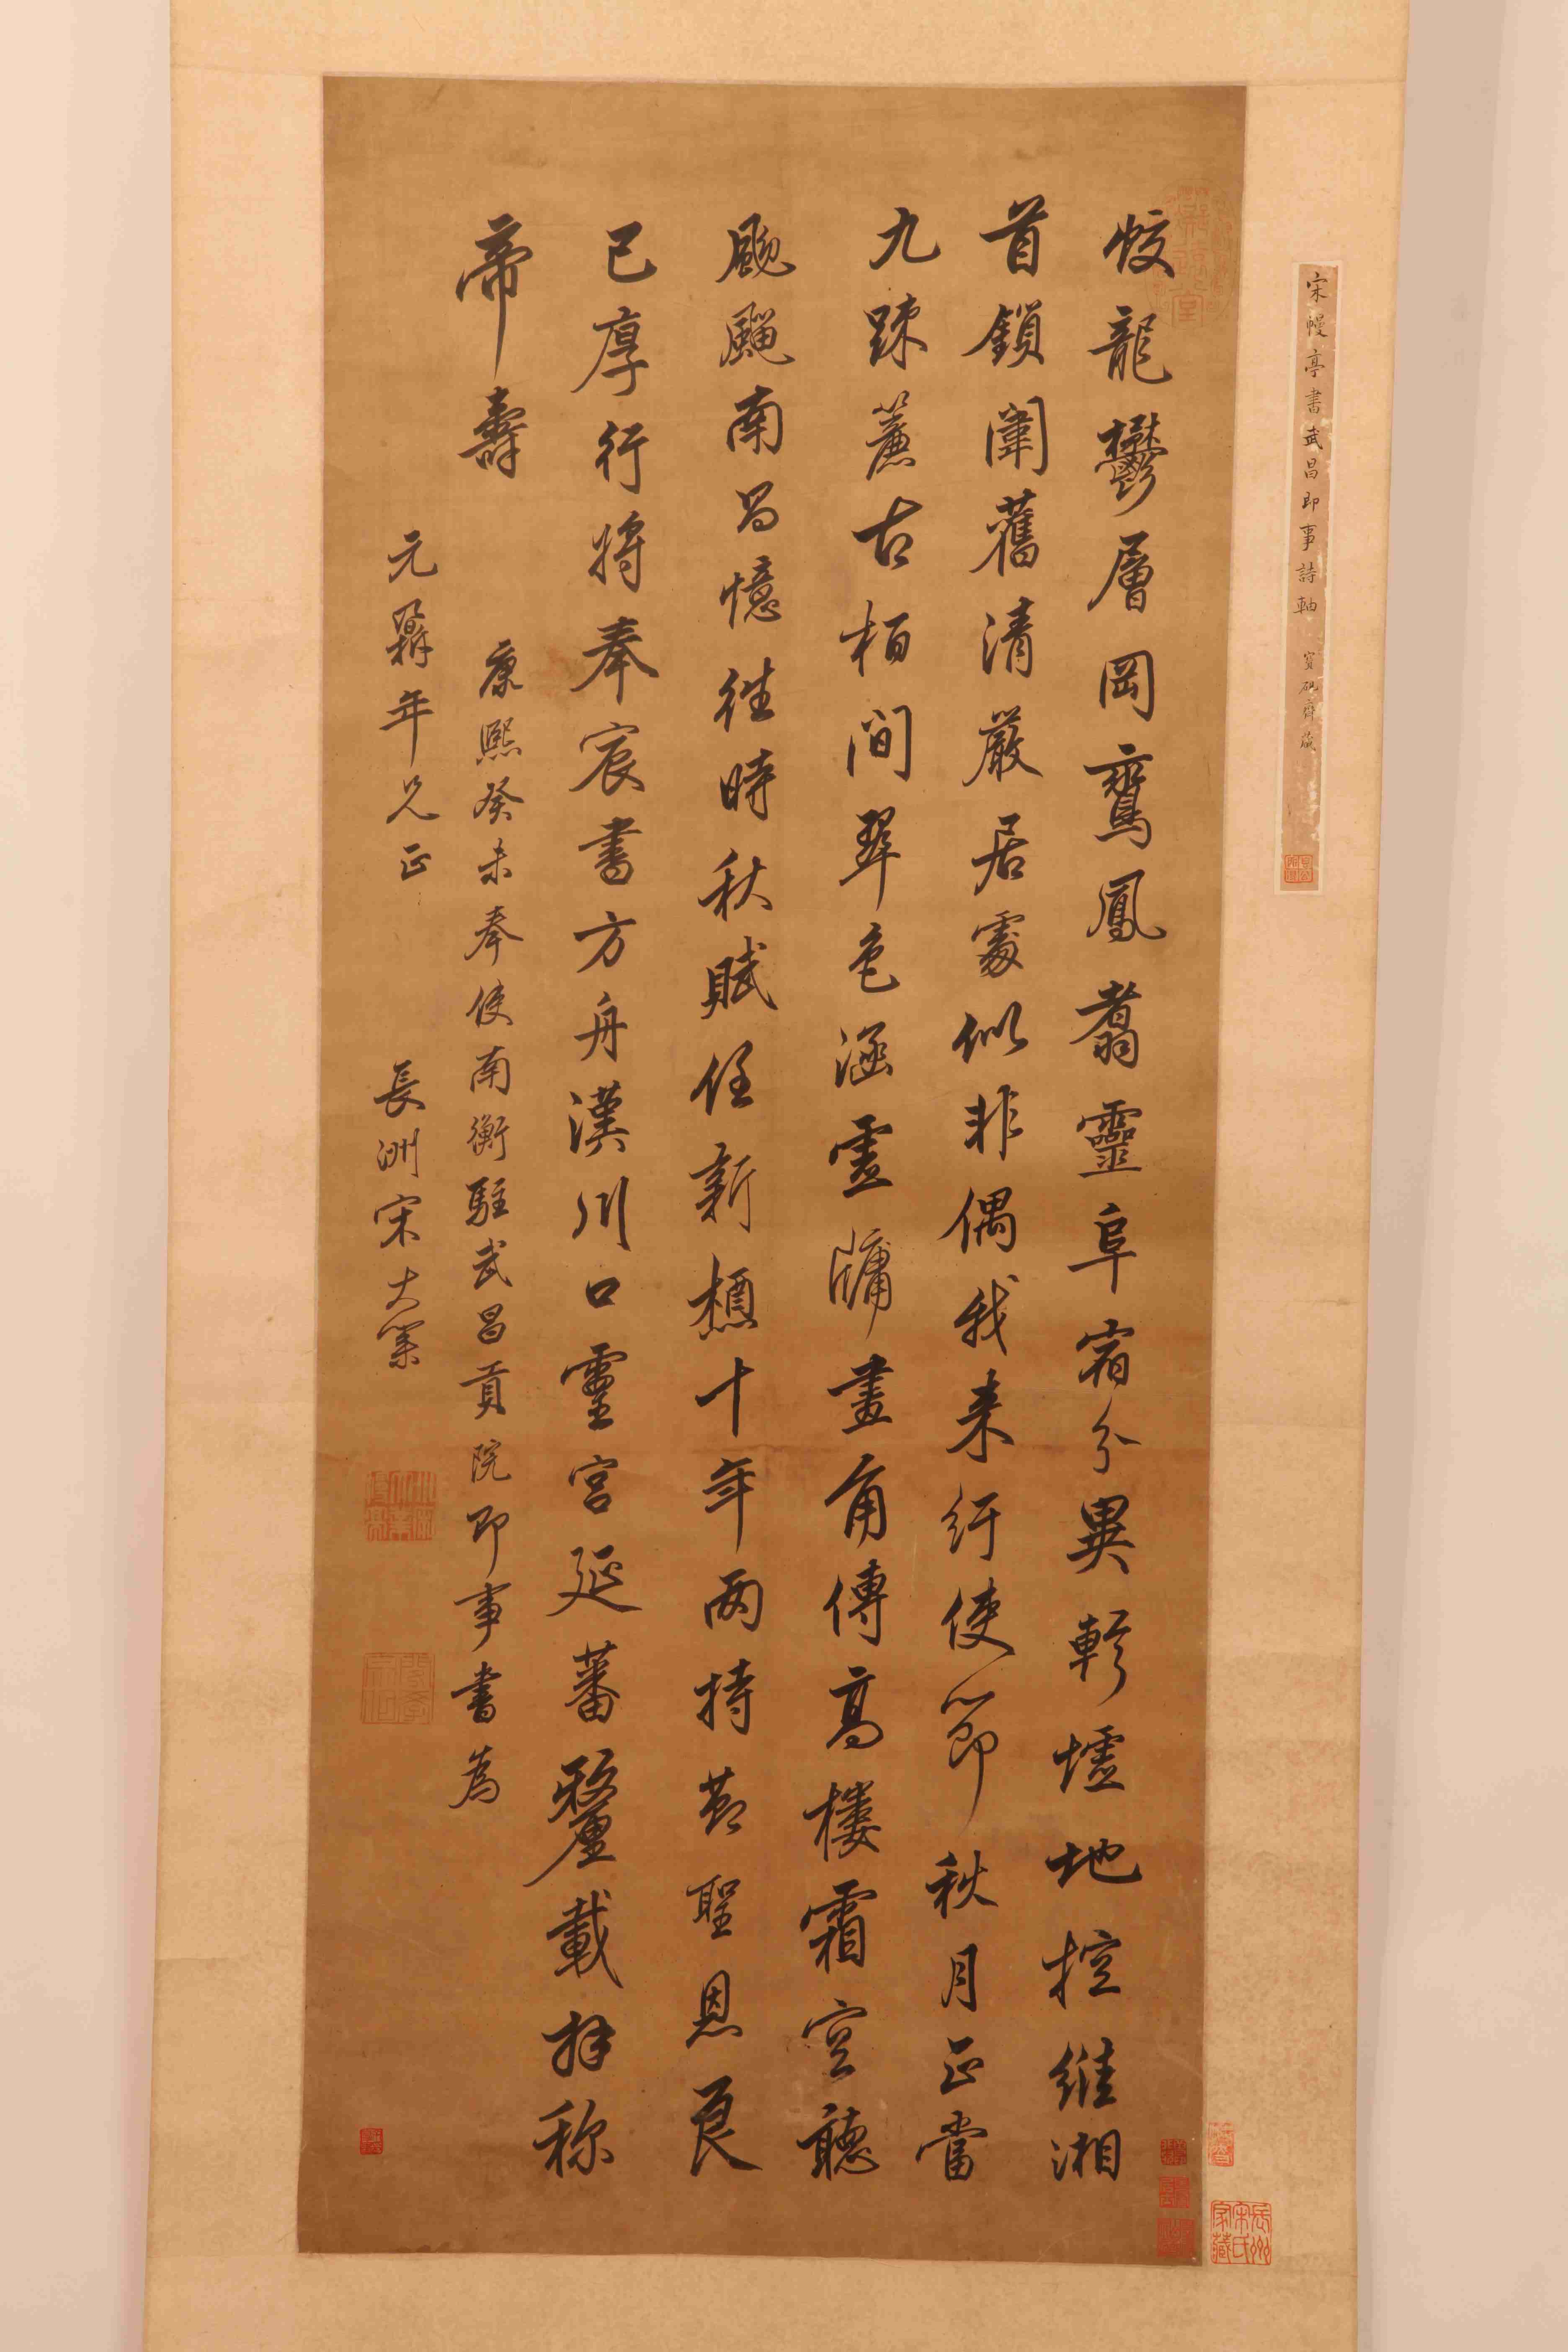 宋幔亭書武昌即事詩軸 寶硯齋藏
蛟龍鬱層岡鸞鳳翥靈阜宿分異軫墟地控維湘
首鎖闈舊清嚴居處似非偶我来紆使節秋月正當
九疎簾古栢間翠色涵虛牖畫角傳高樓霜空聽
颼飀南昌憶往時秋賦任新槱十年兩持節聖恩良
已厚行將奉宸書方舟漢川口靈宮延蕃釐載拜称
帝壽
康熙癸未奉使南衡駐武昌貢院即事書為
元年兄正
長洲宋大業
長州宋氏家藏